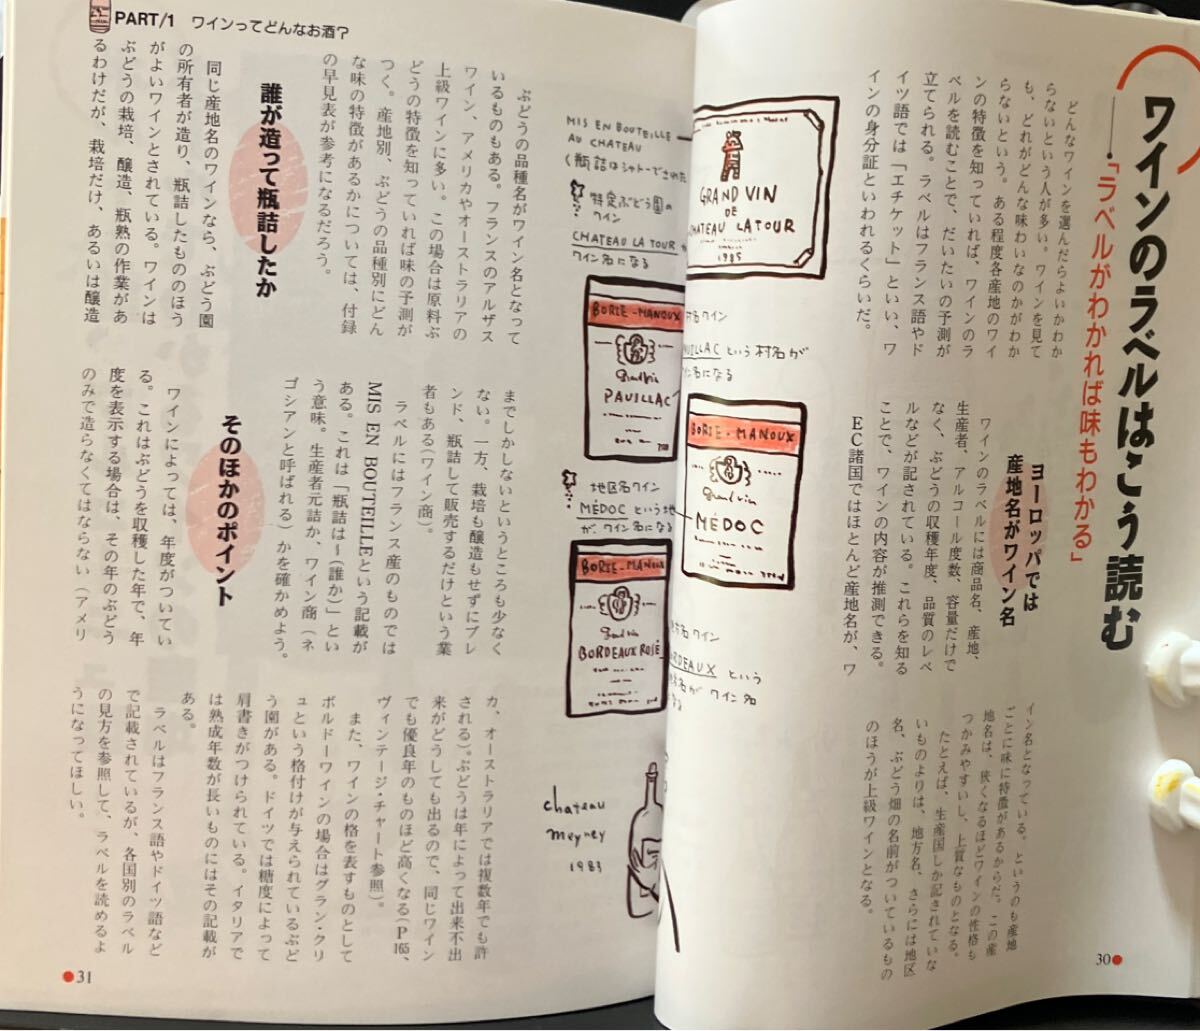 ワインのラベルはこう読む
「ラベルがわかれば味もわかる」
どんなワインを選んだらよいかわか
らないという人が多い。ワインを見て
も、どれがどんな味わいなのかがわか
らないという。ある程度各産地のワイ
ンの特徴を知っていれば、ワインのラ
ベルを読むことで、だいたいの予測が
立てられる。ラベルはフランス語やド
イツ語では「エチケット」といい、ワ
インの身分証といわれるくらいだ。
ヨーロッパでは
産地名がワイン名
ワインのラベルには商品名、産地、
生産者、アルコール度数、容量だけで
なく、ぶどうの収穫年度、品質のレベ
ルなどが記されている。これらを知る
ことで、ワインの内容が推測できる。
EC諸国ではほとんど産地名が、ワ
イン名となっている。というのも産地
ごとに味に特徴があるからだ。この産
地名は、狭くなるほどワインの性格も
つかみやすいし、上質なものとなる。
たとえば、生産国しか記されていな
いものよりは、地方名、さらには地区
名、ぶどう畑の名前がついているもの
のほうが上級ワインとなる。
GRAND VIN
DE
CHATEAU LATOUR
1985
村名ワイン
PAUILLAC という村名が
ワイン名になる
BORIE-MANOUX
Grand vin
MÉDOC
地方名ワイン
BORDEAUX という
地方名が ワイン名
になる
30
PART/1 ワインってどんなお酒?
MIS EN BOUTEILLE
AU CHATEAU
(瓶詰はシャトーでされた
特定ぶどう園の
ワイン
CHATEAU LA TOUR が
ワイン名になる
BORIE-MANOUX
Grand vin
PAUILLAC
地区名ワイン
MÉDOC という地
が、ワイン名になる
BORIE-MANOUX
Grand vin
BORDEAUX ROSÉ
chateau
meyney
1983
ぶどうの品種名がワイン名となって
いるものもある。フランスのアルザス
ワイン、アメリカやオーストラリアの
上級ワインに多い。この場合は原料ぶ
どうの特徴を知っていれば味の予測が
つく。産地別、ぶどうの品種別にどん
な味の特徴があるかについては、付録
の早見表が参考になるだろう。
誰が造って瓶詰したか
同じ産地名のワインなら、ぶどう園
の所有者が造り、瓶詰したもののほう
がよいワインとされている。ワインは
ぶどうの栽培、醸造、瓶熟の作業があ
るわけだが、栽培だけ、あるいは醸造
までしかしないというところも少なく
ない。一方、栽培も醸造もせずにブレ
ンド、瓶詰して販売するだけという業
者もある(ワイン商)。
ラベルにはフランス産のものでは
MIS EN BOUTEILLEという記載が
ある。これは「瓶詰は〜(誰か)」とい
う意味。生産者元詰か、ワイン商(ネ
ゴシアンと呼ばれる)かを確かめよう。
そのほかのポイント
ワインによっては、年度がついてい
る。これはぶどうを収穫した年で、年
度を表示する場合は、その年のぶどう
のみで造らなくてはならない(アメリ
カ、オーストラリアでは複数年でも許
される)。ぶどうは年によって出来不出
来がどうしても出るので、同じワイン
でも優良年のものほど高くなる(P165、
ヴィンテージ・チャート参照)。
また、ワインの格を表すものとして
ボルドーワインの場合はグラン・クリ
ュという格付けが与えられているぶど
う園がある。ドイツでは糖度によって
肩書きがつけられている。イタリアで
は熟成年数が長いものにはその記載が
ある。
ラベルはフランス語やドイツ語など
で記載されているが、各国別のラベル
の見方を参照して、ラベルを読めるよ
うになってほしい。
31